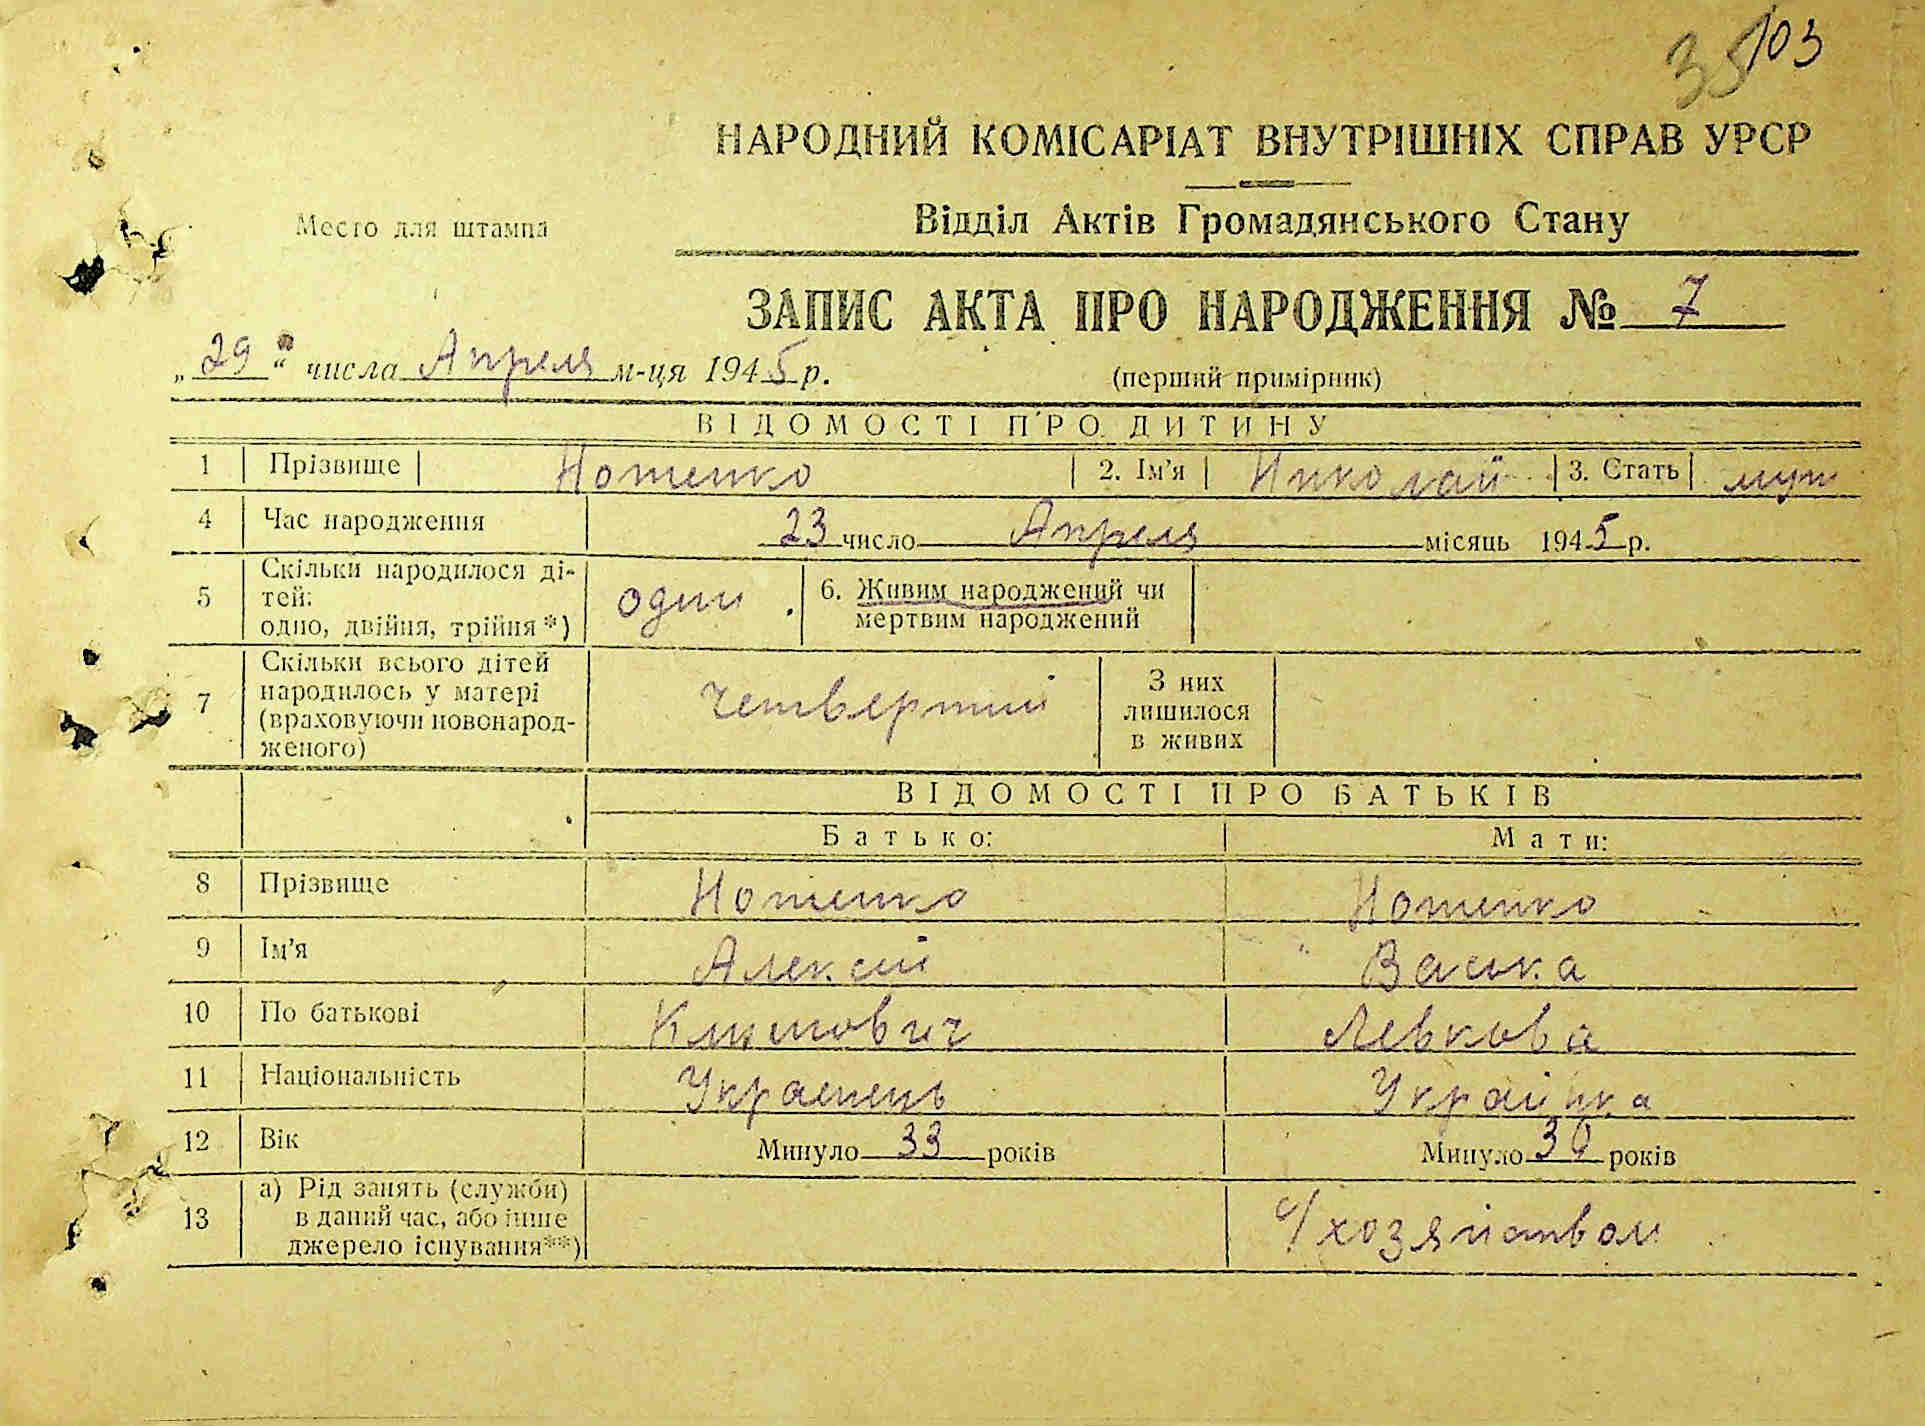 35 103
НАРОДНИЙ КОМІСАРІАТ ВНУТРІШНІХ СПРАВ УРСР
Место для штампа
Відділ Актів Громадянського Стану
ЗАПИС АКТА ПРО НАРОДЖЕННЯ № 7
„29“ числа Апреля м-ця 1945 р.
(перший примірник)
ВІДОМОСТІ ПРО ДИТИНУ
1 Прізвище Нотенко 2. Ім'я Николай 3. Стать муж
4 Час народження 23 число Апреля місяць 1945 р.
5 Скільки народилося ді-
тей:
одно, двійня, трійня*) один. 6. Живим народжений чи
мертвим народжений
7 Скільки всього дітей
народилось у матері
(враховуючи новонарод-
женого) четвертий З них
лишилося
в живих
ВІДОМОСТІ ПРО БАТЬКІВ
Батько: Мати:
8 Прізвище Нотенко Нотенко
9 Ім'я Алексій Васька
10 По батькові Климович Левкова
11 Національність Украінець Украінка
12 Вік Минуло 33 років Минуло 30 років
13 а) Рід занять (служби)
в даний час, або інше
джерело існування**) с/хозяйством